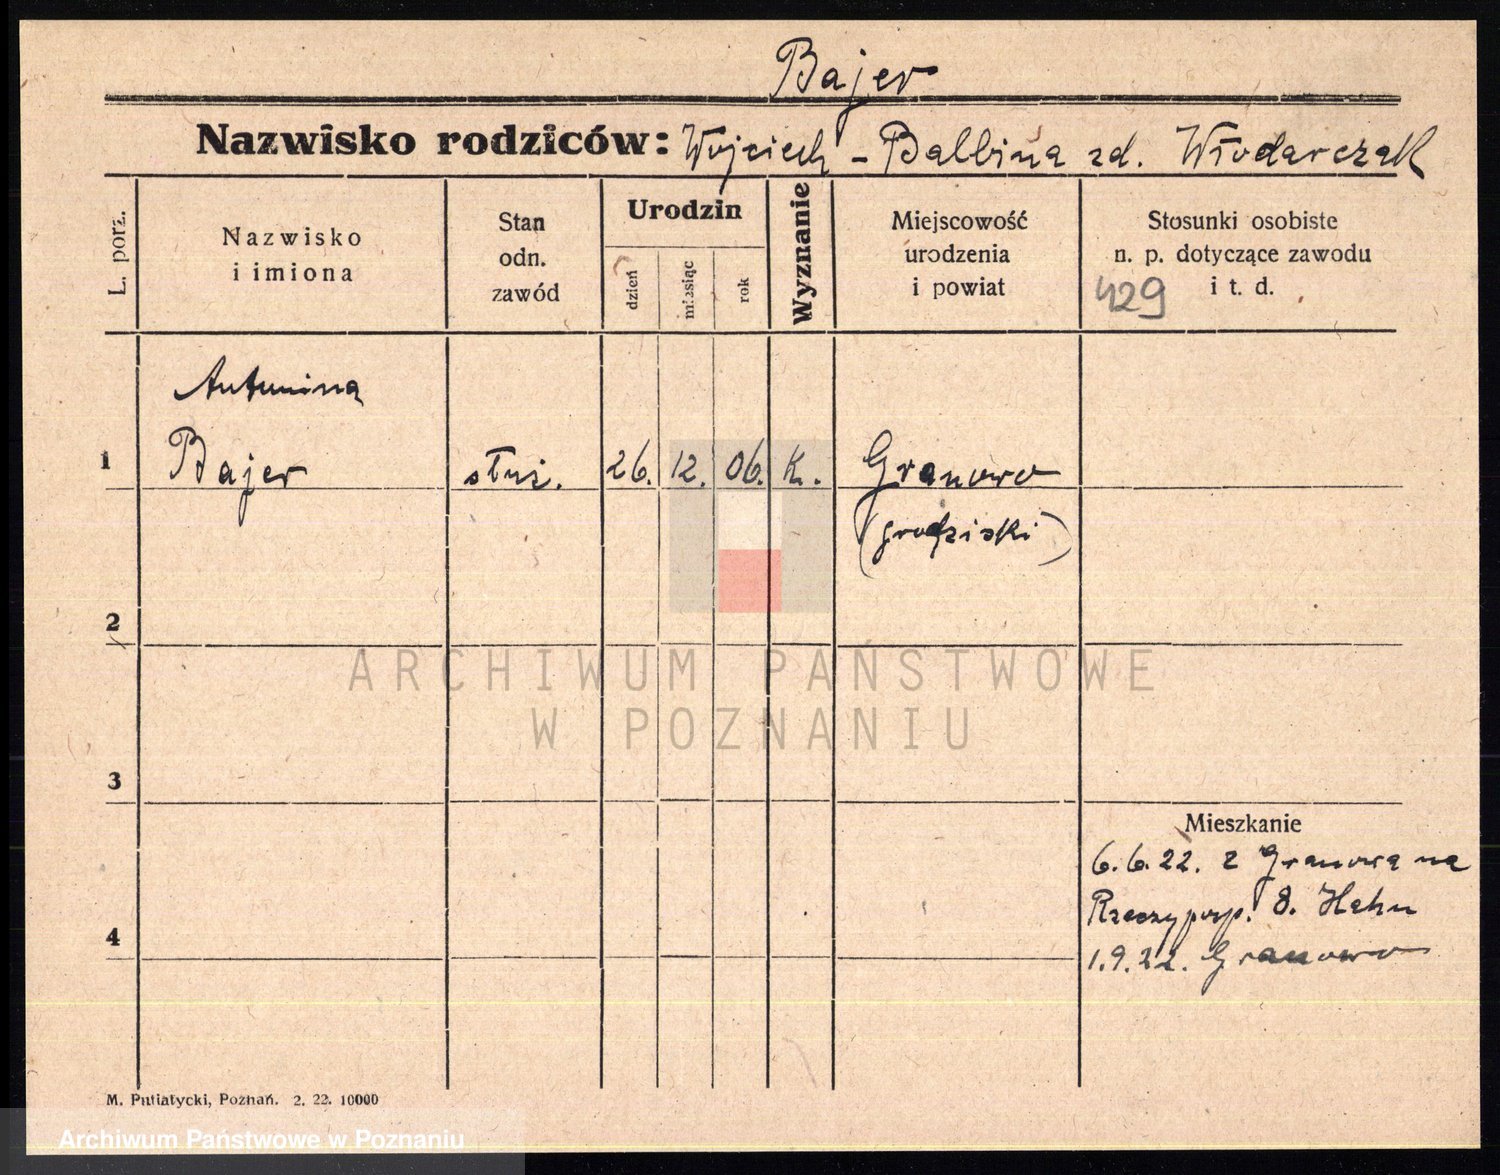 Bajer
Nazwisko rodziców: Wojciech - Balbina zd. Włodarczak
L. porz.
Nazwisko
i imiona
Stan
odn.
zawód
Urodzin
dzień
miesiąc
rok
Wyznanie
Miejscowość
urodzenia
i powiat
Stosunki osobiste
n. p. dotyczące zawodu
i t. d.
429
Antonina
1 Bajer służ. 26. 12. 06. K. Granowo
(grodziski)
2
ARCHIWUM PAŃSTWOWE
W POZNANIU
3
Mieszkanie
6.6.22. z Granowa na
Rzeczyposp. 8. Hahn
4
1.9.22. Granowo
M. Putiatycki, Poznań. 2. 22. 10000
Archiwum Państwowe w Poznaniu